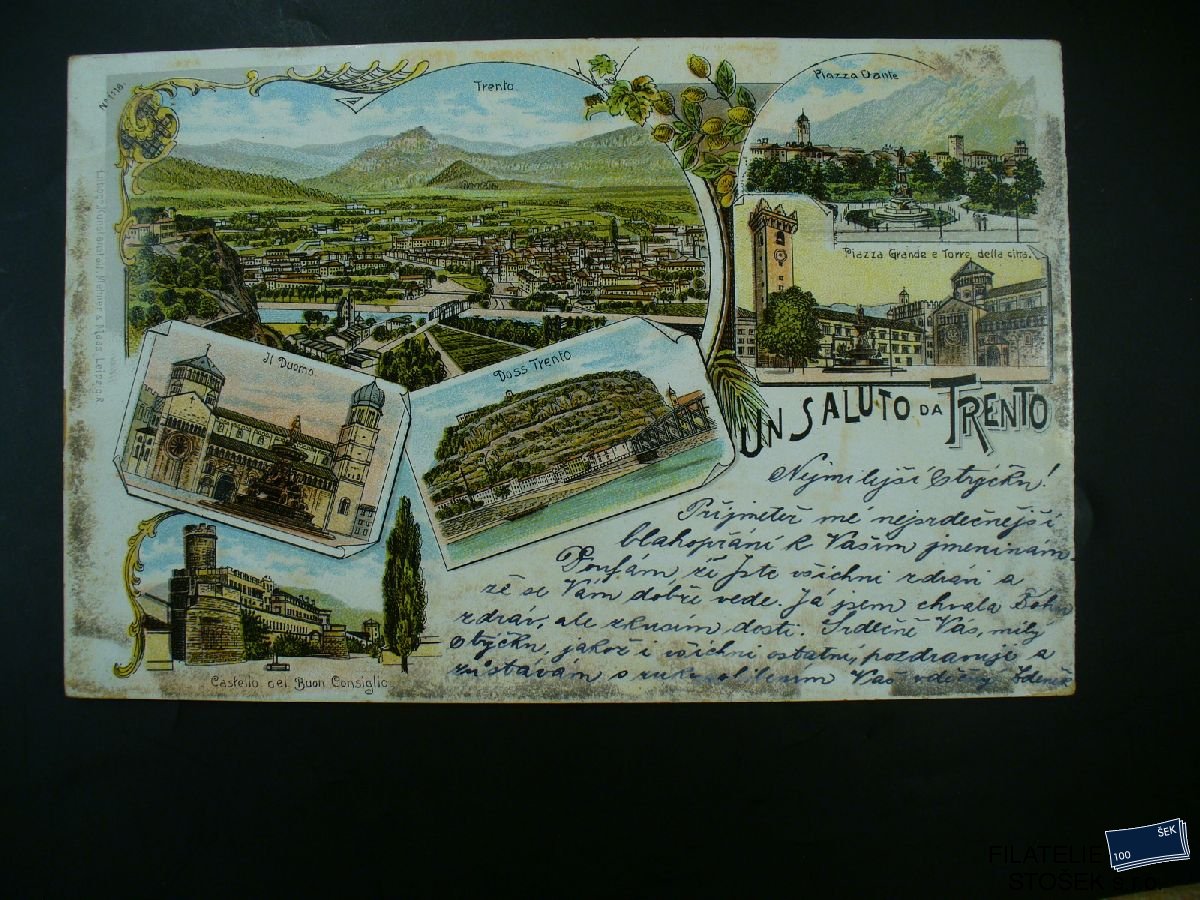 Nº 1118
Trento.
Piazza Dante
Piazza Grande e Torre della citta.
Il Duomo
Doss Trento
Castello del Buon Consiglio
UN SALUTO DA TRENTO
Nejmilejší strýčku!
Přijmětež mé nejsrdečnější
blahopřání k Vašim jmeninám
Doufám, že jste všichni zdrávi a
že se Vám dobře vede. Já jsem chvála Bohu
zdráv, ale zkusím dosti. Srdečně Vás, milý
strýčku, jakož i všichni ostatní, pozdravuje a
zůstávám s ruky líbáním Váš vděčný Zdeněk
100 ŠEK
FILATELIE
STOŠEK s.r.o.